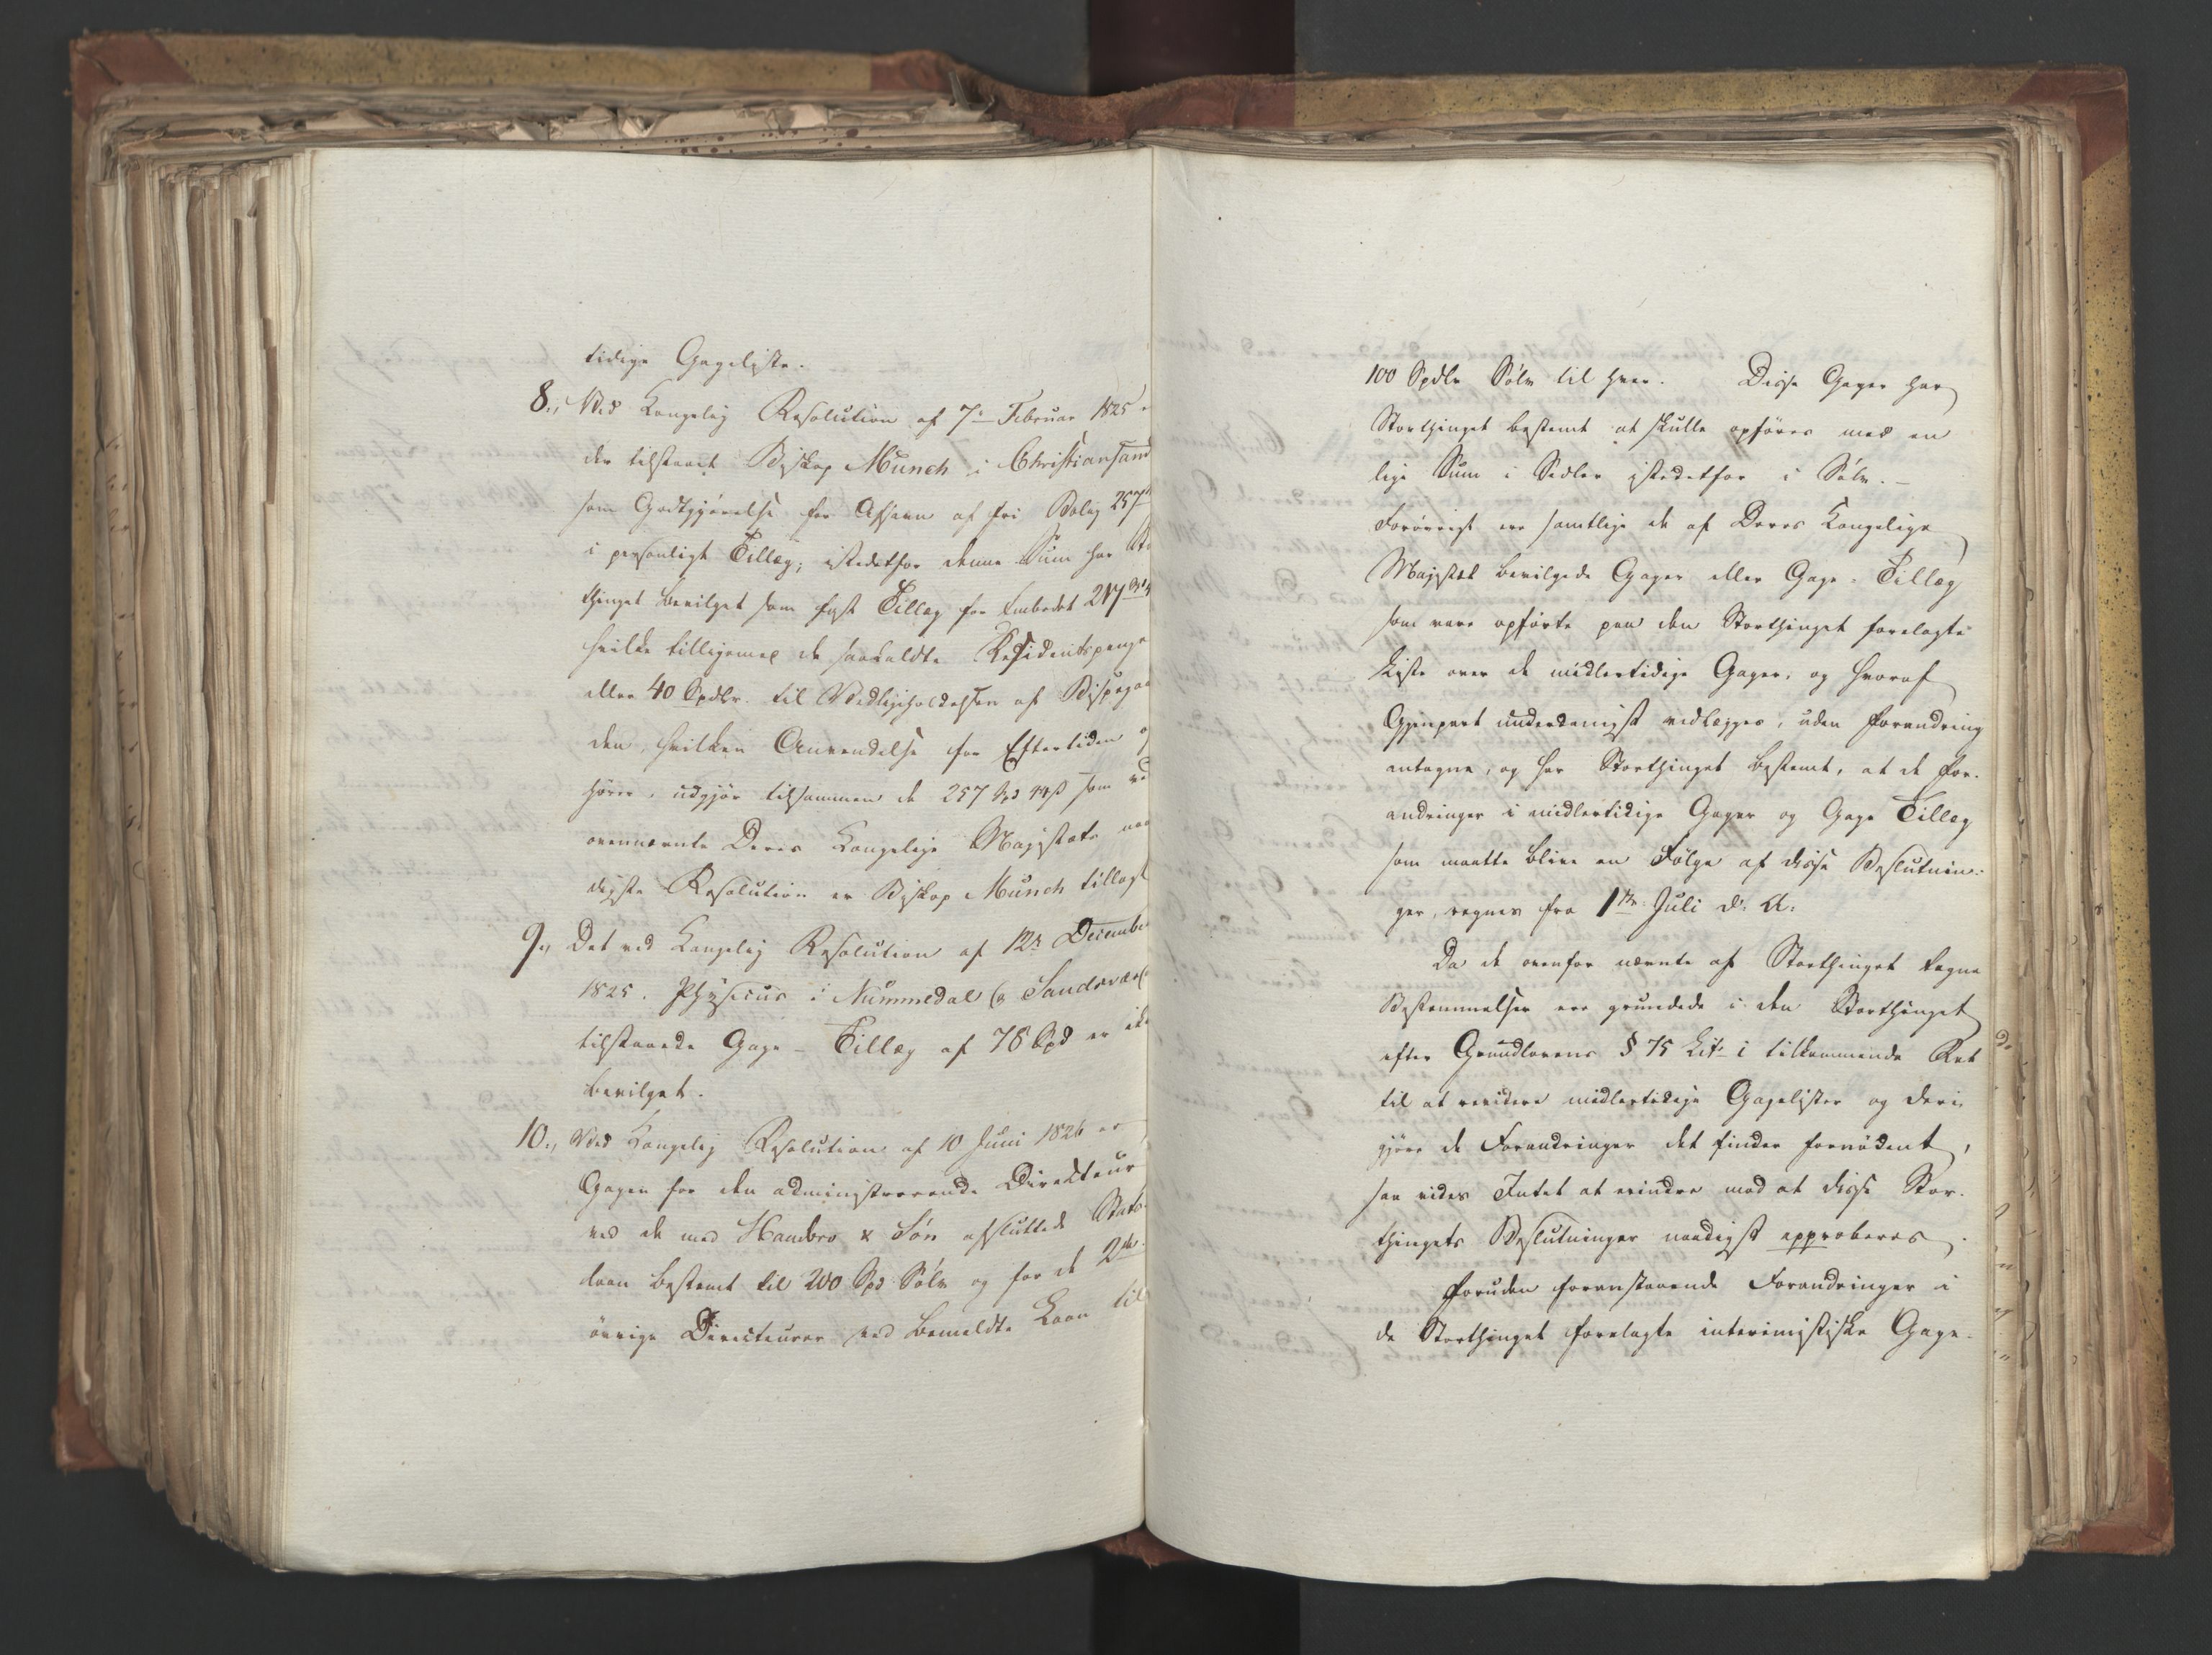 tidige Gageliste.
8., Ved Kongelig Resolution af 7de Februar 1825 e
der tilstaaet Biskop Munch i Christiansand
som Godtgjørelse for Afsavn af fri Bolig 257
i personligt Tillæg; istedetfor denne Sum har Sto
thinget bevilget som fast Tillæg for Embedet 217
hvilke tilligemed de saakaldte Residentspenge
eller 40 Spdlr. til Vedligeholdelsen af Bispegaar
den, hvilken Anvendelse for Eftertiden o
hører, udgjør tilsammen de 257 Spd som ved
ovennævnte Deres Kongelige Majestæts naa
digste Resolution er Biskop Munch tillagt
9., Det ved Kongelig Resolution af 12te Decembe
1825. Physicus i Nummedal og Sandsvær
tilstaaede Gage-Tillæg af 78 Spd er ikke
bevilget.
10., Ved Kongelig Resolution af 10 Juni 1826 er
Gagen for den administrerende Directeur
ved de med Hambro & Søn afsluttede Stats-
laan bestemt til 200 Spd Sølv og for de 2de
øvrige Directeurer ved bemeldte Laan til
100 Spdlr Sølv til hver. Disse Gager har
Storthinget bestemt at skulle opføres med en
lige Sum i Sedler istedetfor i Sølv.-
Forøvrigt ere samtlige de af Deres Kongelige
Majestæt bevilgede Gager eller Gage-Tillæg
som vare opførte paa den Storthinget forelagte
Liste over de midlertidige Gager, og hvoraf
Gjenpart underdanigst vedlægges, uden Forandring
antagne, og har Storthinget bestemt, at de For-
andringer i midlertidige Gager og Gage Tillæg
som maatte blive en Følge af disse Beslutnin-
ger, regnes fra 1ste Juli d: A:
Da de ovenfor nævnte af Storthinget tagne
Bestemmelser ere grundede i den Storthinget
efter Grundlovens § 75 Litr i tilkommende Ret
til at revidere midlertidige Gagelister og deri
gjøre de Forandringer det finder fornødent,
saa vides Intet at erindre mod at disse Stor-
thingets Beslutninger naadigst approberes.
Foruden foranstaaende Forandringer i
de Storthinget forelagte interimistiske Gage-